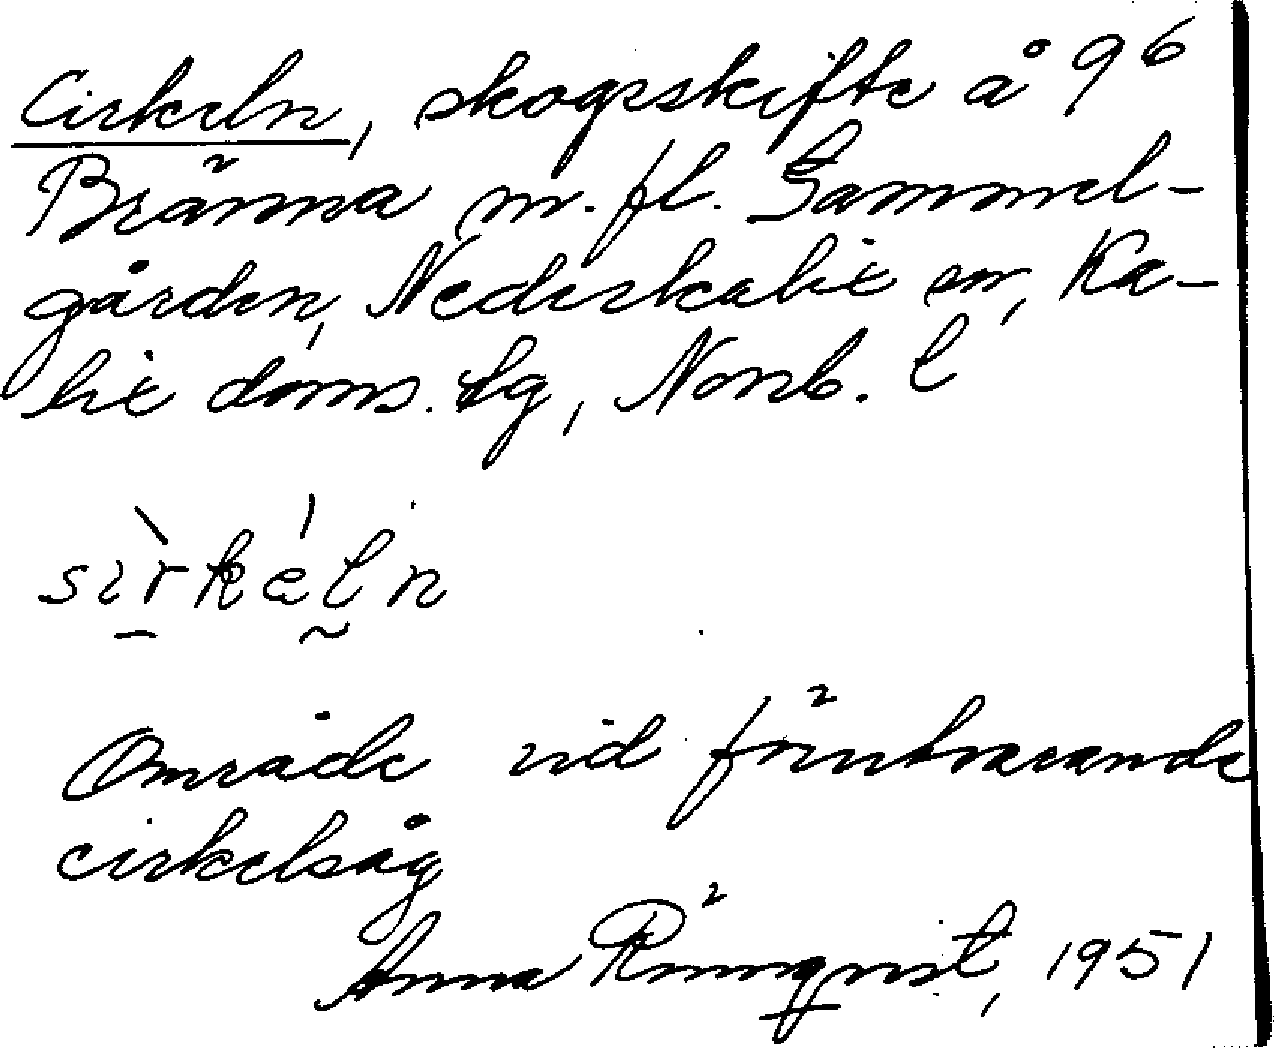 Cirkeln, skogsskifte å 96
Bränna m. fl. Gammel-
gården, Nederkalix sn, Ka-
lix doms. tg, Norrb. l
sìrkéln
Område vid förutvarande
cirkelsåg
Anna Rönnqvist, 1951